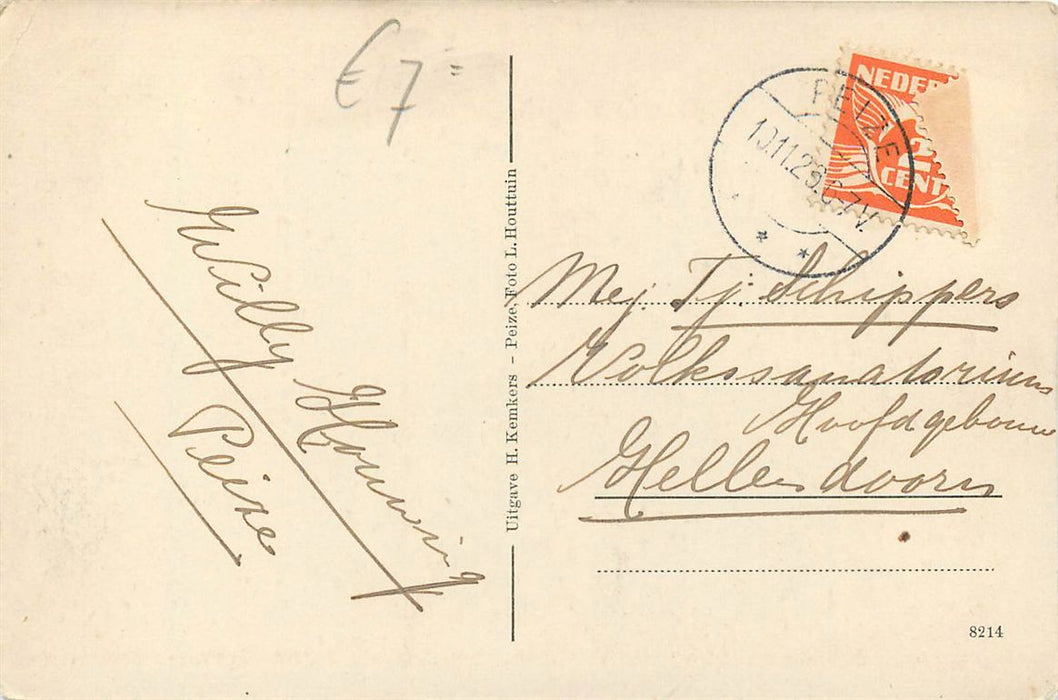 € 7 =
NEDER
2
CENT
PEIZE
10.11.26.6-7V.
Willy Houwing
Peize
Uitgave H. Kemkers - Peize, Foto L. Houttuin
Mej. Tj. Schippers
Volkssanatorium
Hoofdgebouw
Hellendoorn
8214